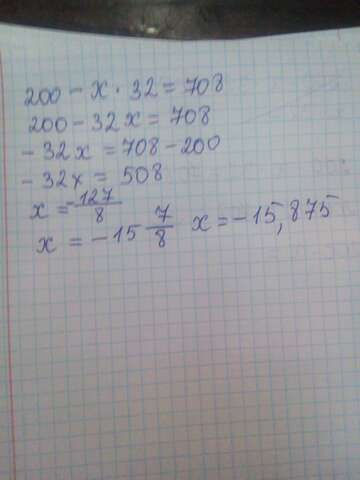 200 - x · 32 = 708
200 - 32x = 708
- 32x = 708 - 200
- 32x = 508
x = -127/8
x = -15 7/8 x = -15,875